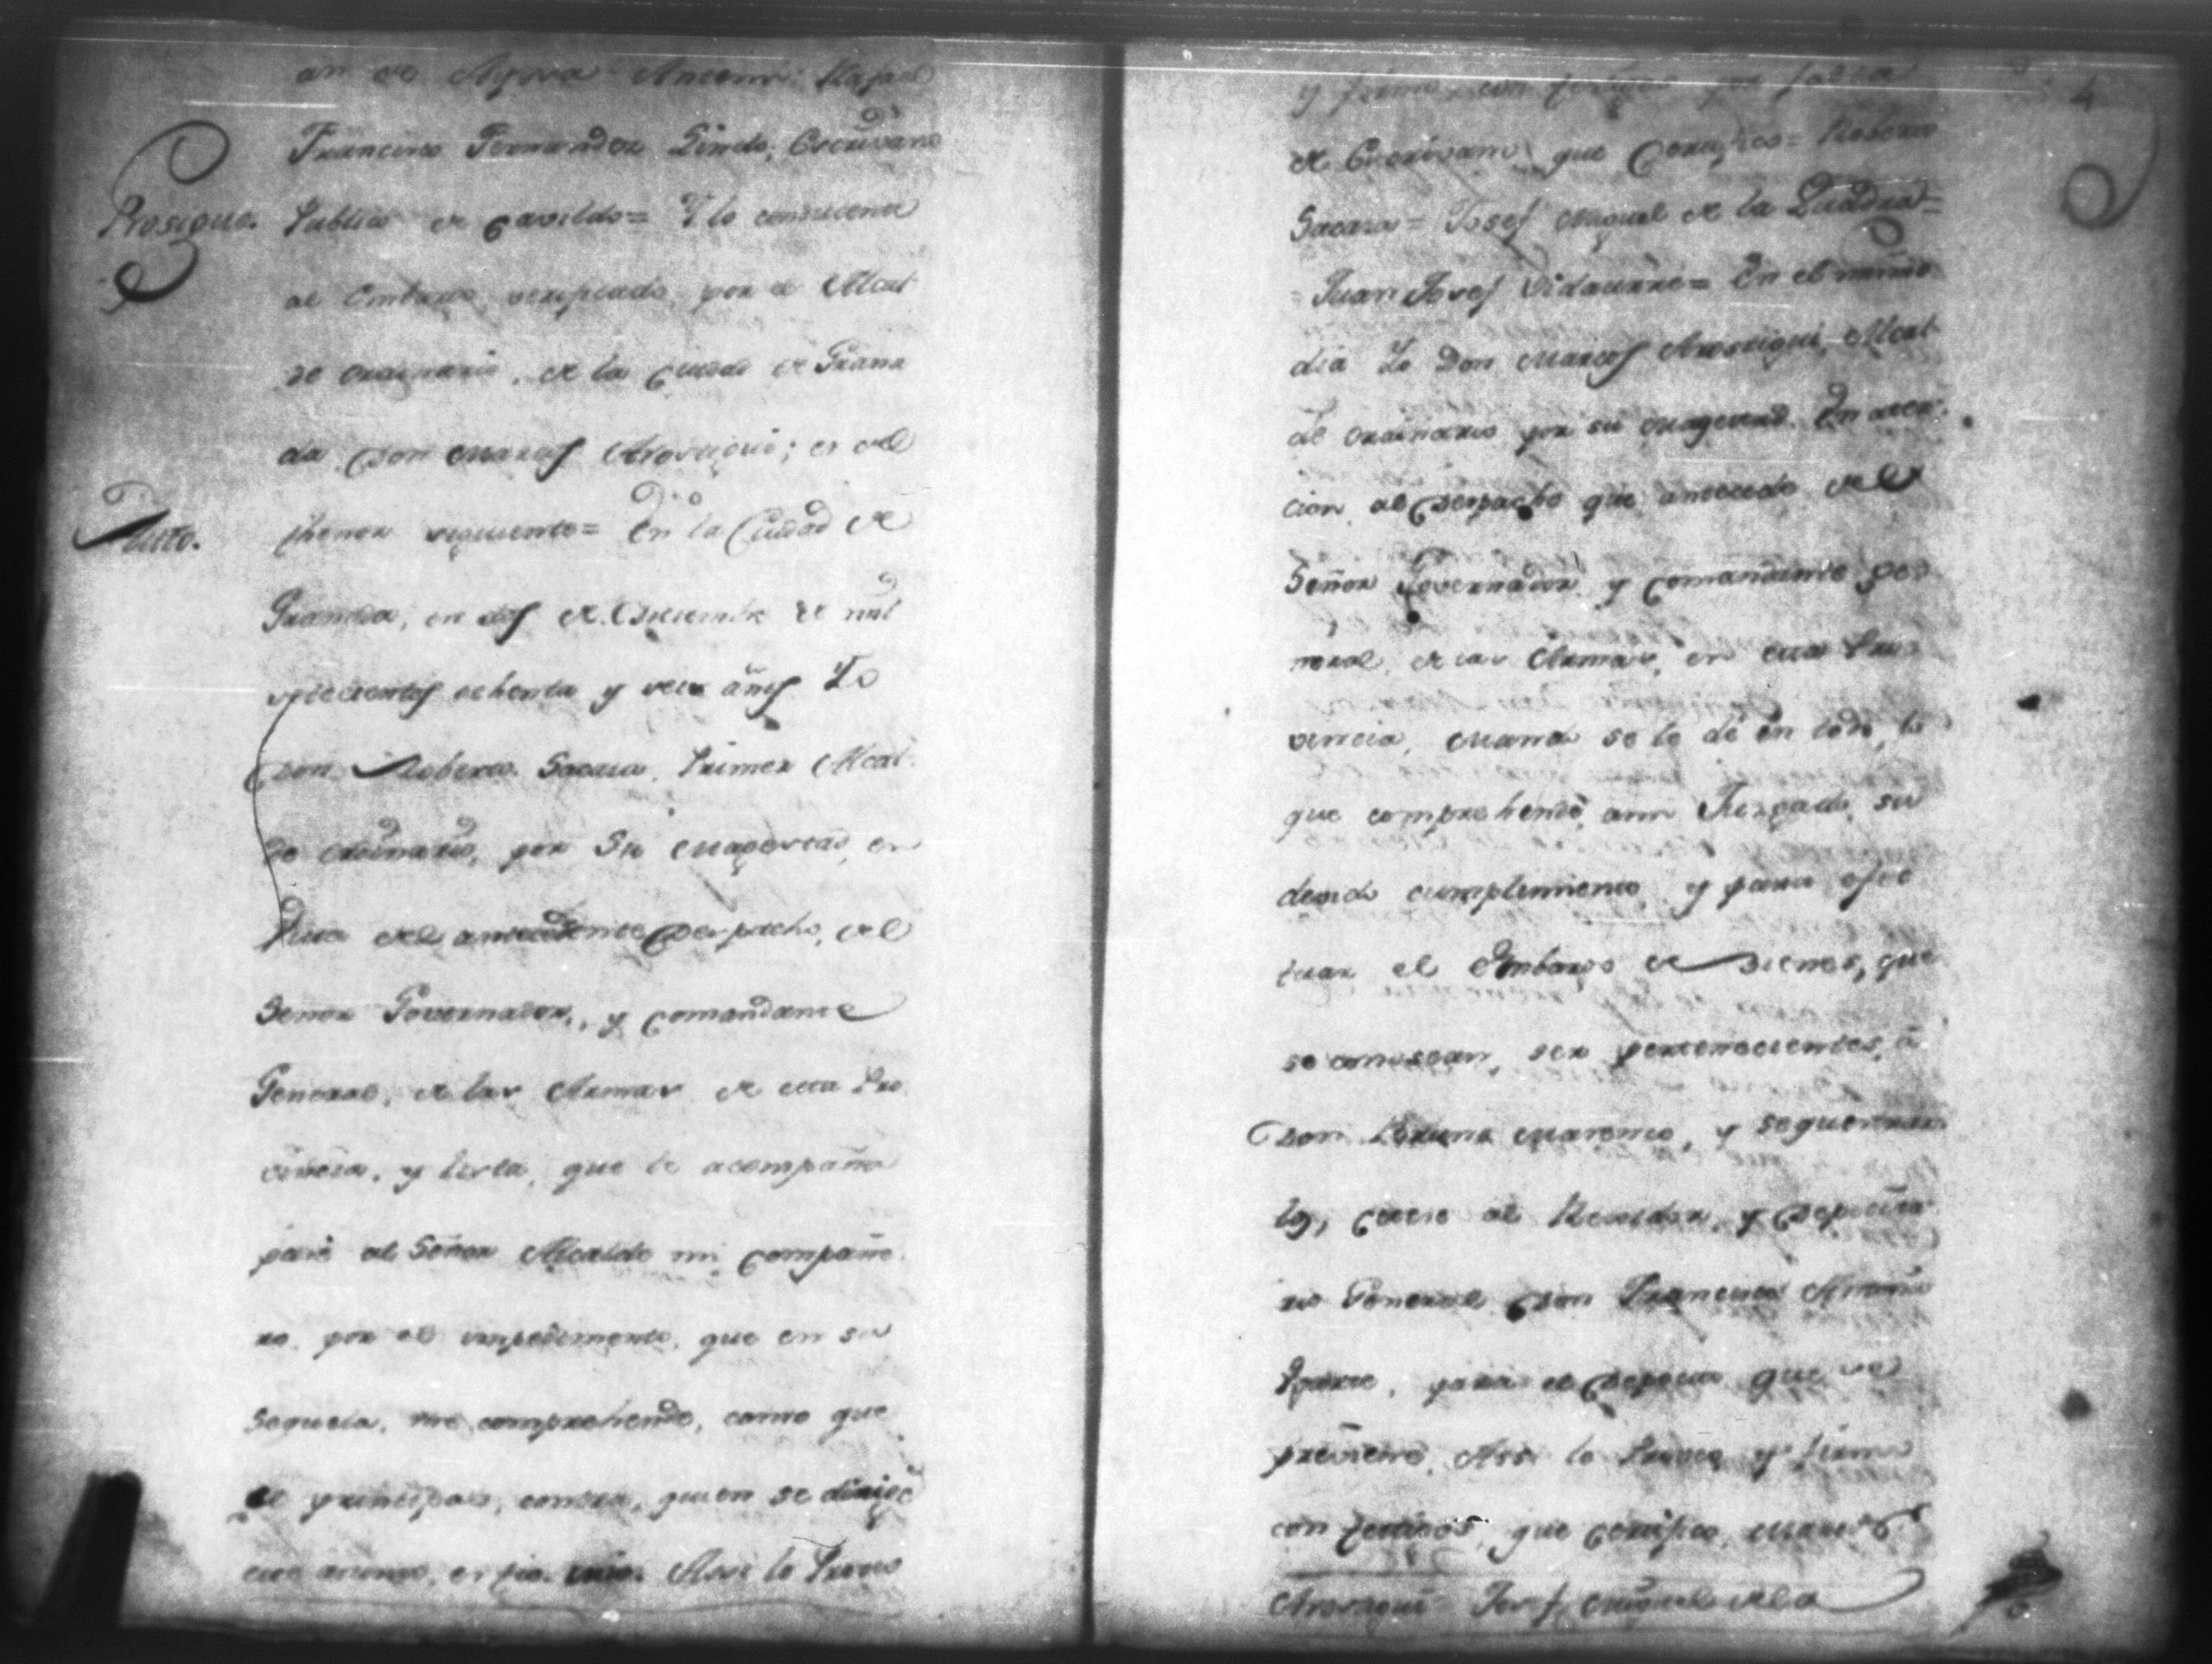 an de Ayssa Antemi: Rafael
Francisco Fernandez Pineda, Escrivano
Prosigue. Publico de Cavildo= Y lo consecuente
al Embargo verificado por el Alcal
de ordinario, de la Ciudad de Grana
da Don Marcos Arosteguí; es del
Auto. thenor siguiente= En la Ciudad de
Granada, en dos de Diciembre de mil
setecientos ochenta y seis años Yo
Don Roberto Sacasa, Primer Alcal
de ordinario, por Su Magestad, en
vista del antecedente Despacho, del
Señor Governador, y Comandante
General, de las Armas de esta Pro
vincia, y lista, que le acompaña
pase al Señor Alcalde mi Compañe
ro, por el impedimento, que en su
sequela, me comprehende, como que
el principal, contra, quien se dirige
es mio. Assi lo Proveo
4
y firmo con testigos por falta
de Escrivano que Certifico= Roberto
Sacasa= Josef Miguel de la Quadra=
Juan Josef Vidaurre= En el mismo
dia Yo Don Marcos Arosteguí, Alcal
de ordinario por su Magestad. En aten
cion al Despacho que antecede del
Señor Governador y Comandante Ge
neral, de las Armas, en esta Pro
vincia, Mando se le dé en todo, lo
que comprehende, a mi Juzgado, su
devido cumplimiento y para efec
tuar el Embargo de Bienes, que
se conoscan, ser pertenecientes, á
Don Marenco, y
los, Citese al Regidor, y Deposita
rio General Don Francisco
para el Deposito que se
previene. Assi lo Proveo y firmo
con testigos, que Certifico, Marcos
Arosteguí Josef Miguel de la